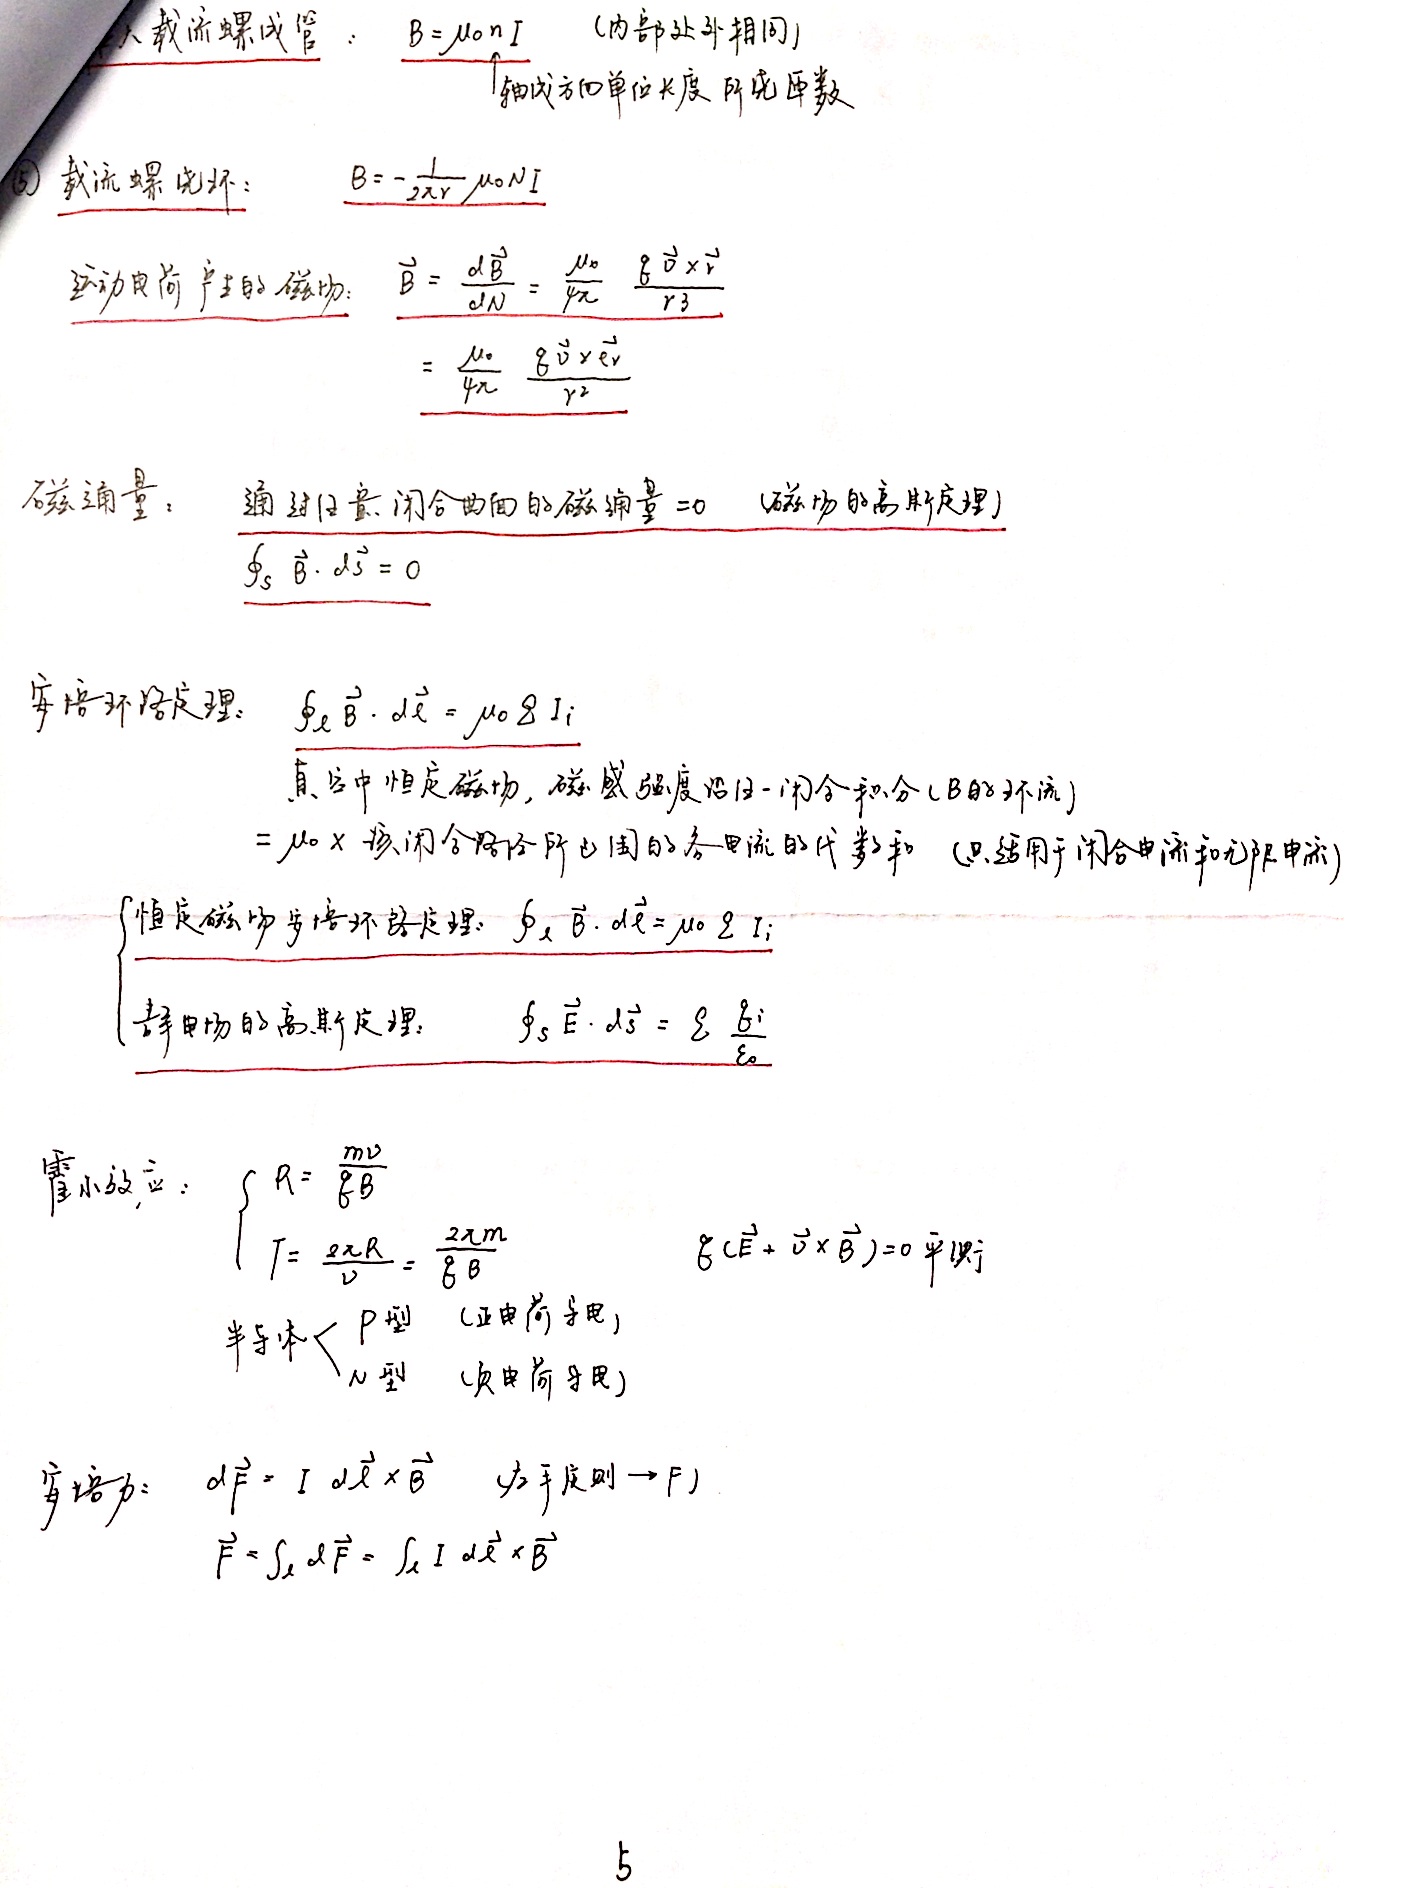 大载流螺线管： B = μ₀nI （内部处处相同）
↑轴线方向单位长度所绕匝数
⑤ 载流螺绕环： B = -1/2πr μ₀NI
运动电荷产生的磁场： B⃗ = dB⃗/dN = μ₀/4π qv⃗×r⃗/r³
= μ₀/4π qv⃗×e⃗r/r²
磁通量： 通过任意闭合曲面的磁通量=0 （磁场的高斯定理）
∮s B⃗·ds⃗ = 0
安培环路定理： ∮ℓ B⃗·dℓ⃗ = μ₀ΣIi
真空中恒定磁场，磁感强度沿任一闭合积分（B的环流）
= μ₀ × 该闭合路径所包围的各电流的代数和 （只适用于闭合电流和无限电流）
恒定磁场安培环路定理： ∮ℓ B⃗·dℓ⃗ = μ₀ΣIi
静电场的高斯定理： ∮s E⃗·ds⃗ = Σ qi/ε₀
霍尔效应： R = mv/qB
T = 2πR/v = 2πm/qB q(E⃗ + v⃗×B⃗)=0 平衡
半导体 < P型 （正电荷导电）
N型 （负电荷导电）
安培力： dF⃗ = I dℓ⃗×B⃗ （左手定则→F）
F⃗ = ∫ℓ dF⃗ = ∫ℓ I dℓ⃗×B⃗
5